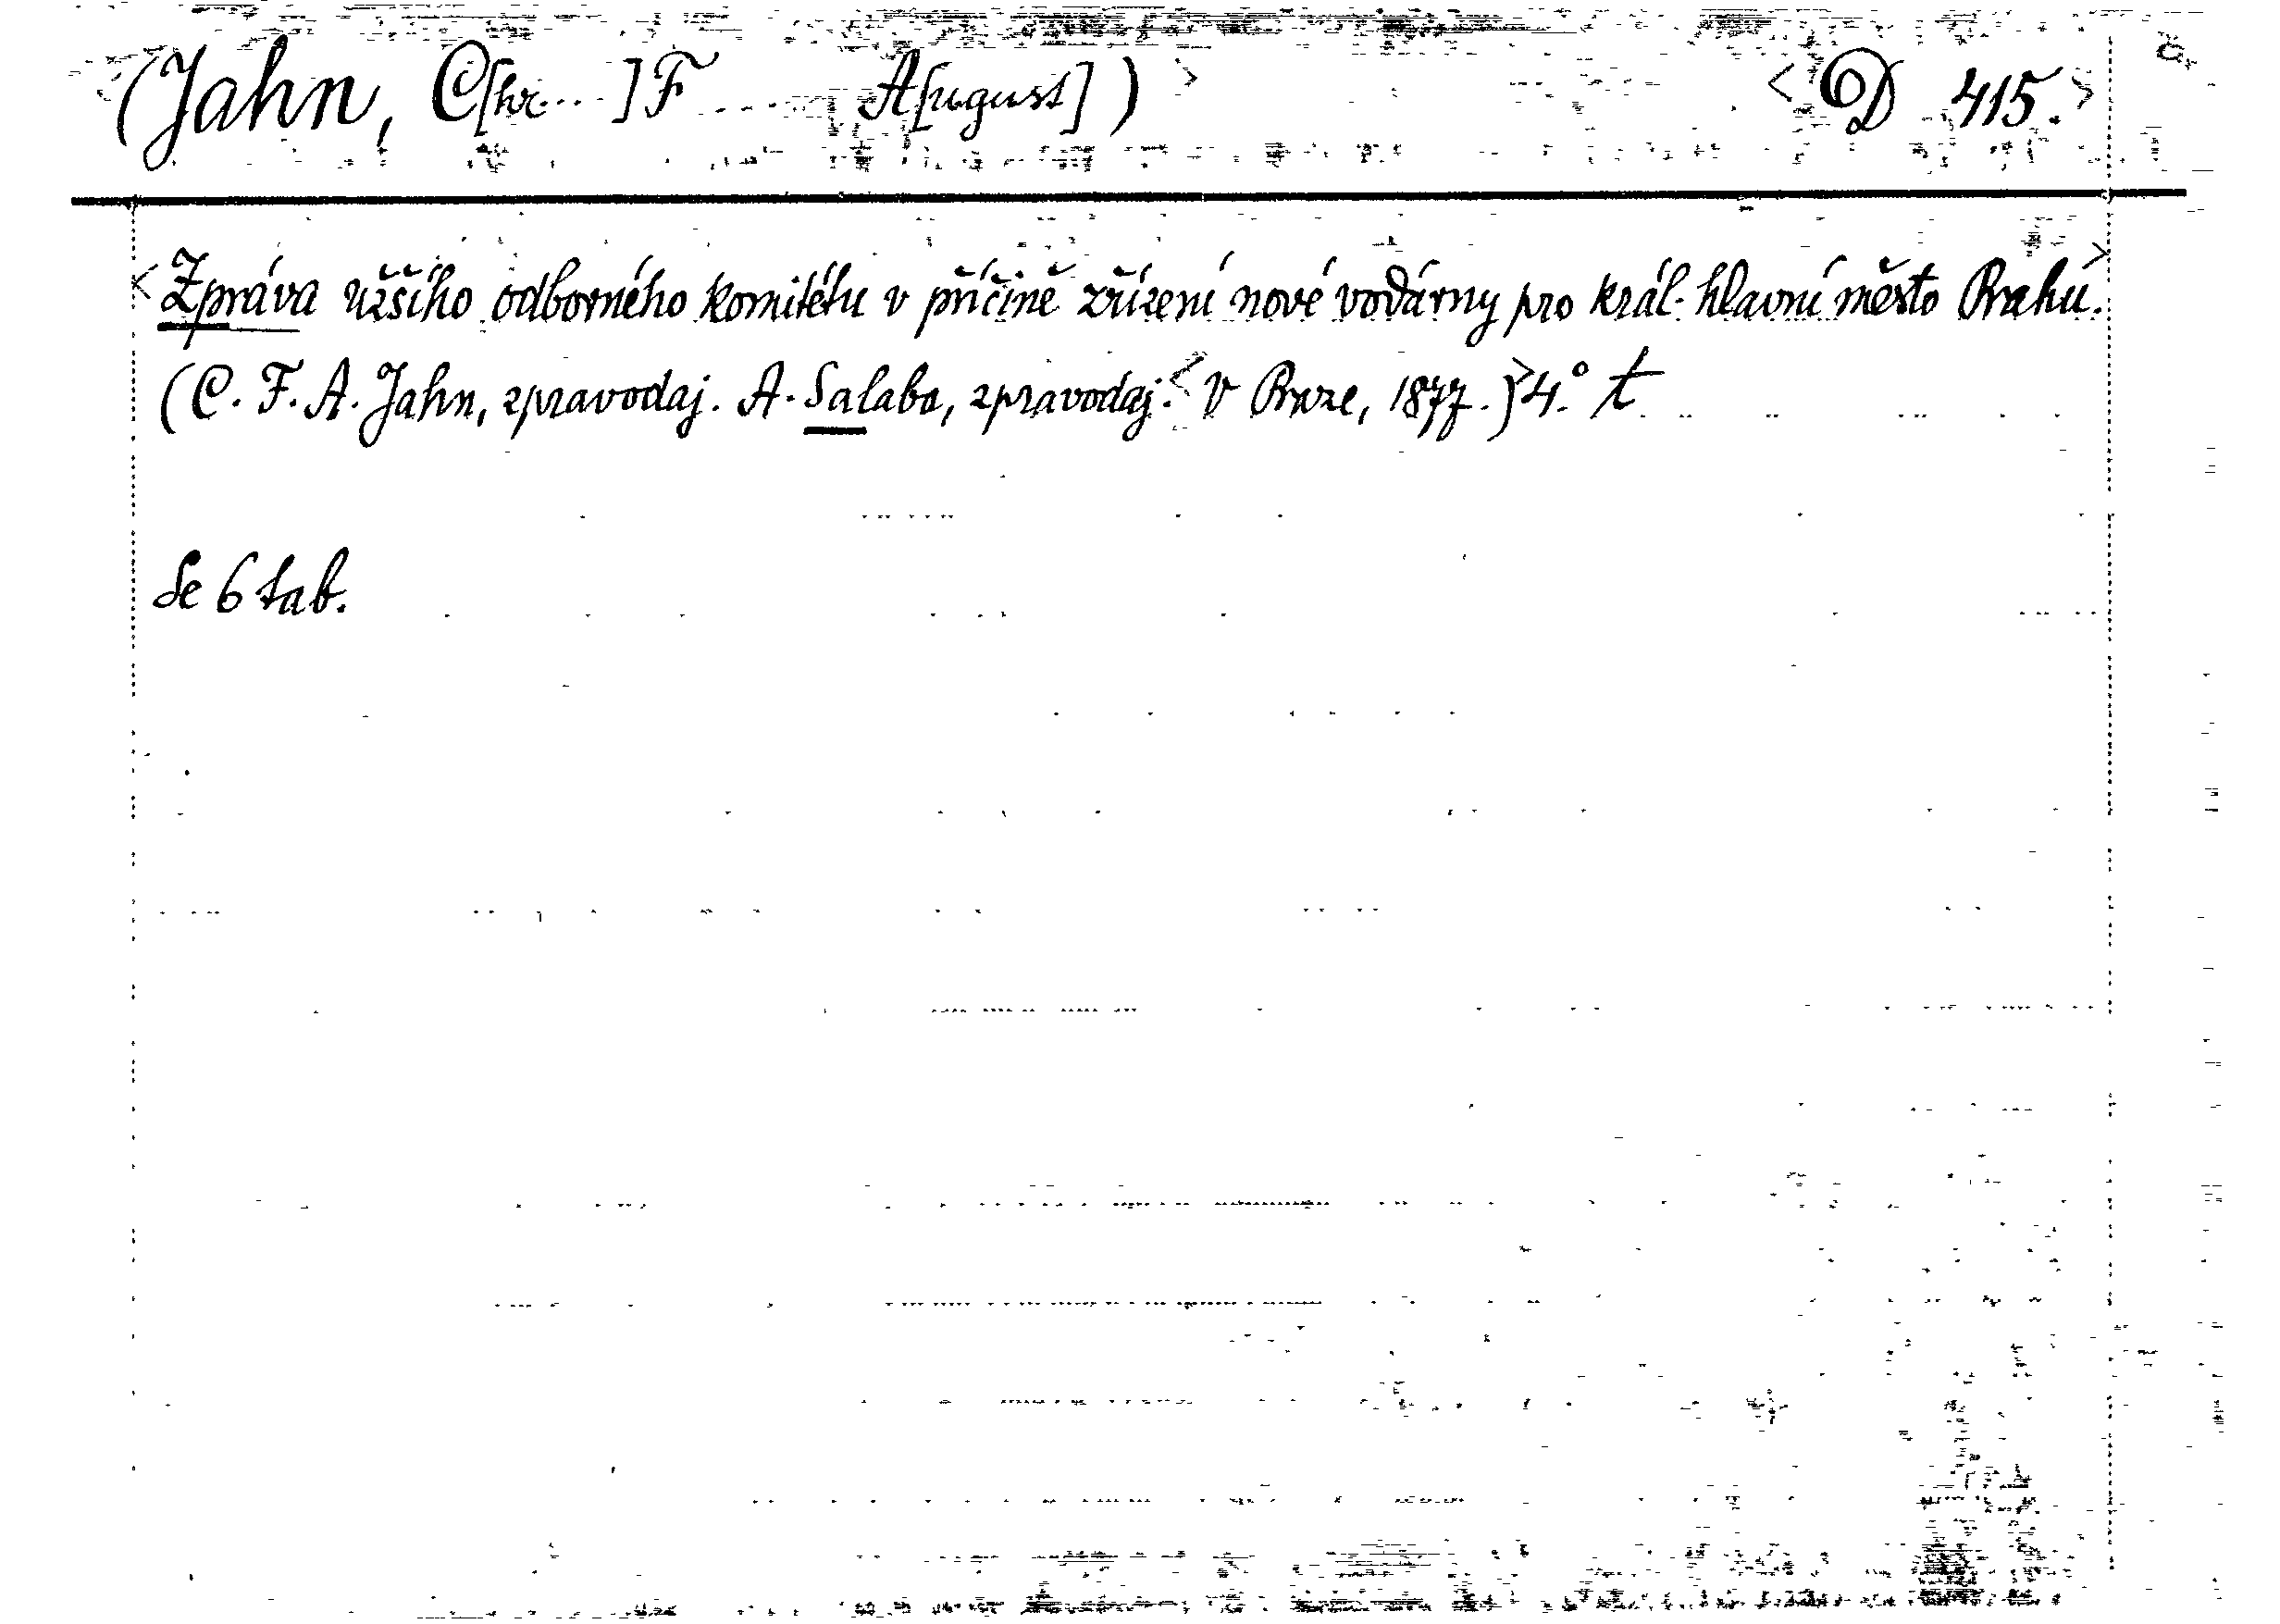 (Jahn, C[hr....] F..... A[ugust]) > < D 415. >
< Zpráva užšího odborného komitétu v příčině zřízení nové vodárny pro král. hlavní město Prahu. >
(C. F. A. Jahn, zpravodaj. A. Salaba, zpravodaj. < V Praze, 1877.) > 4.° t
Se 6 tab.